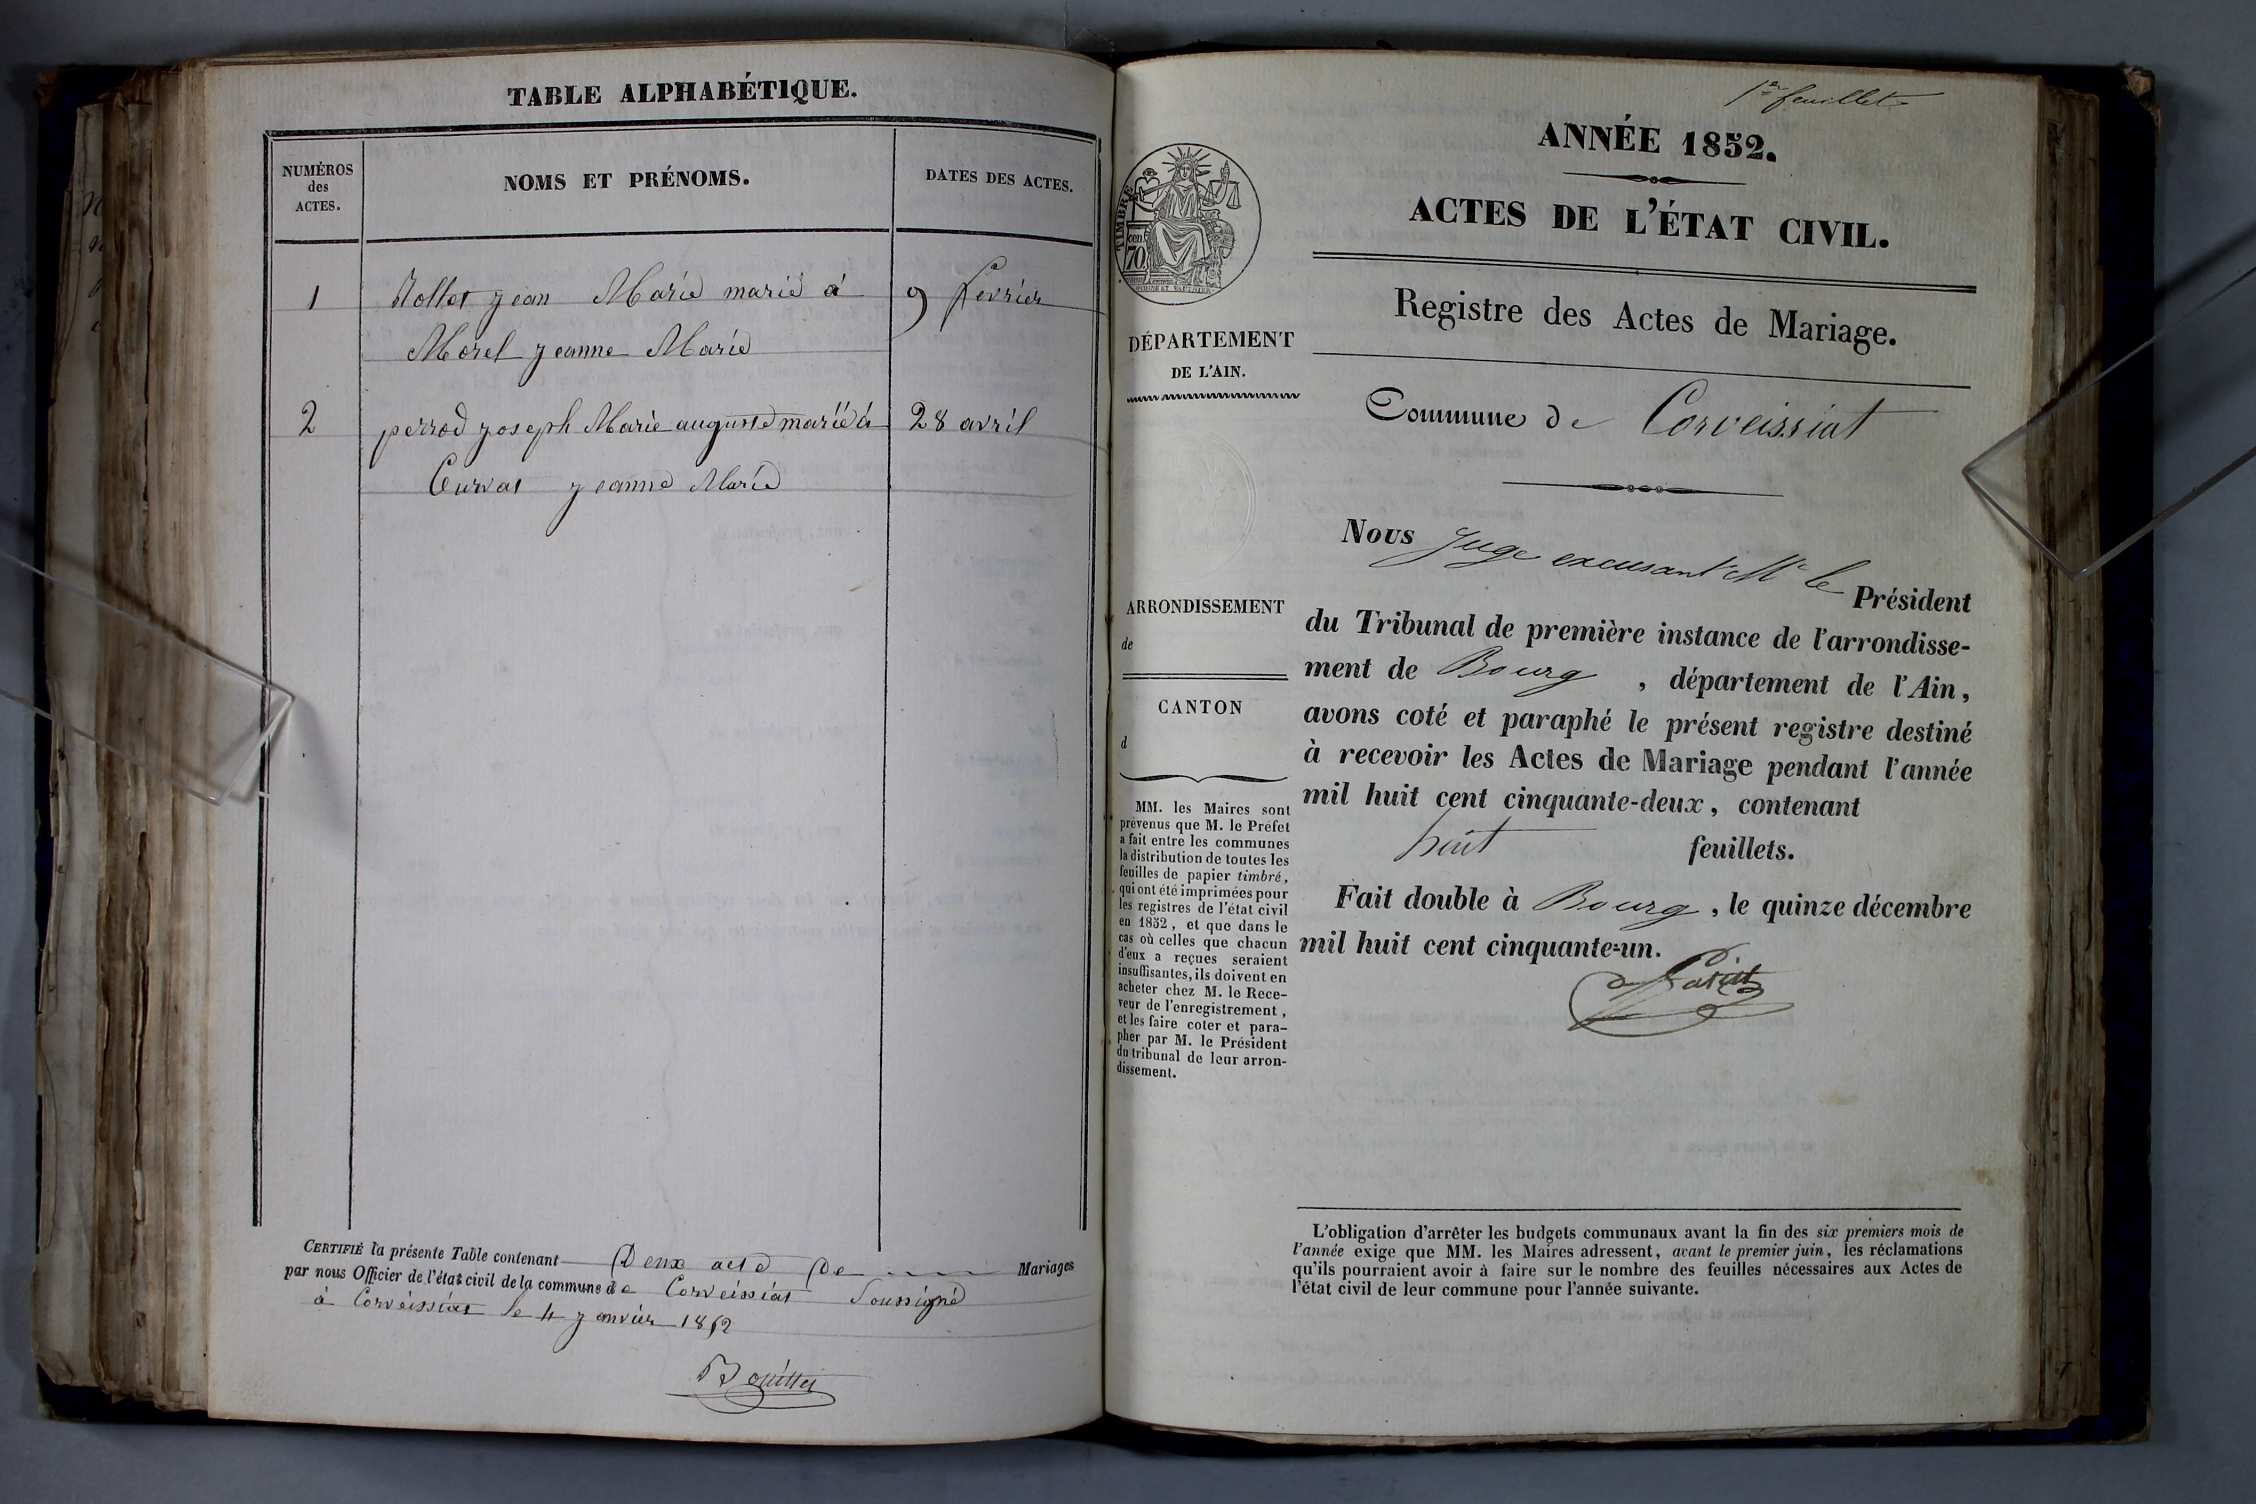 TABLE ALPHABÉTIQUE.
NUMÉROS
des
ACTES.
NOMS ET PRÉNOMS.
DATES DES ACTES.
1 Nollet jean Marie marié à 9 fevrier
Morel jeanne Marie
2 perrod joseph Marie auguste marié à 28 avril
Curvat jeanne Marie
CERTIFIÉ la présente Table contenant Deux acte De Mariages
par nous Officier de l'état civil de la commune de Corveissiat Soussigné
à Corveissiat le 4 janvier 1852
Bouillet
1er feuillet
ANNÉE 1852.
ACTES DE L'ÉTAT CIVIL.
Registre des Actes de Mariage.
Commune de Corveissiat
TIMBRE
70
DÉPARTEMENT
DE L'AIN.
ARRONDISSEMENT
de
CANTON
d
MM. les Maires sont
prévenus que M. le Préfet
a fait entre les communes
la distribution de toutes les
feuilles de papier timbré,
qui ont été imprimées pour
les registres de l'état civil
en 1852, et que dans le
cas où celles que chacun
d'eux a reçues seraient
insuffisantes, ils doivent en
acheter chez M. le Rece-
veur de l'enregistrement,
et les faire coter et para-
pher par M. le Président
du tribunal de leur arron-
dissement.
Nous Juge excusant Mr le Président
du Tribunal de première instance de l'arrondisse-
ment de Bourg, département de l'Ain,
avons coté et paraphé le présent registre destiné
à recevoir les Actes de Mariage pendant l'année
mil huit cent cinquante-deux, contenant
huit feuillets.
Fait double à Bourg, le quinze décembre
mil huit cent cinquante-un.
L'obligation d'arrêter les budgets communaux avant la fin des six premiers mois de
l'année exige que MM. les Maires adressent, avant le premier juin, les réclamations
qu'ils pourraient avoir à faire sur le nombre des feuilles nécessaires aux Actes de
l'état civil de leur commune pour l'année suivante.